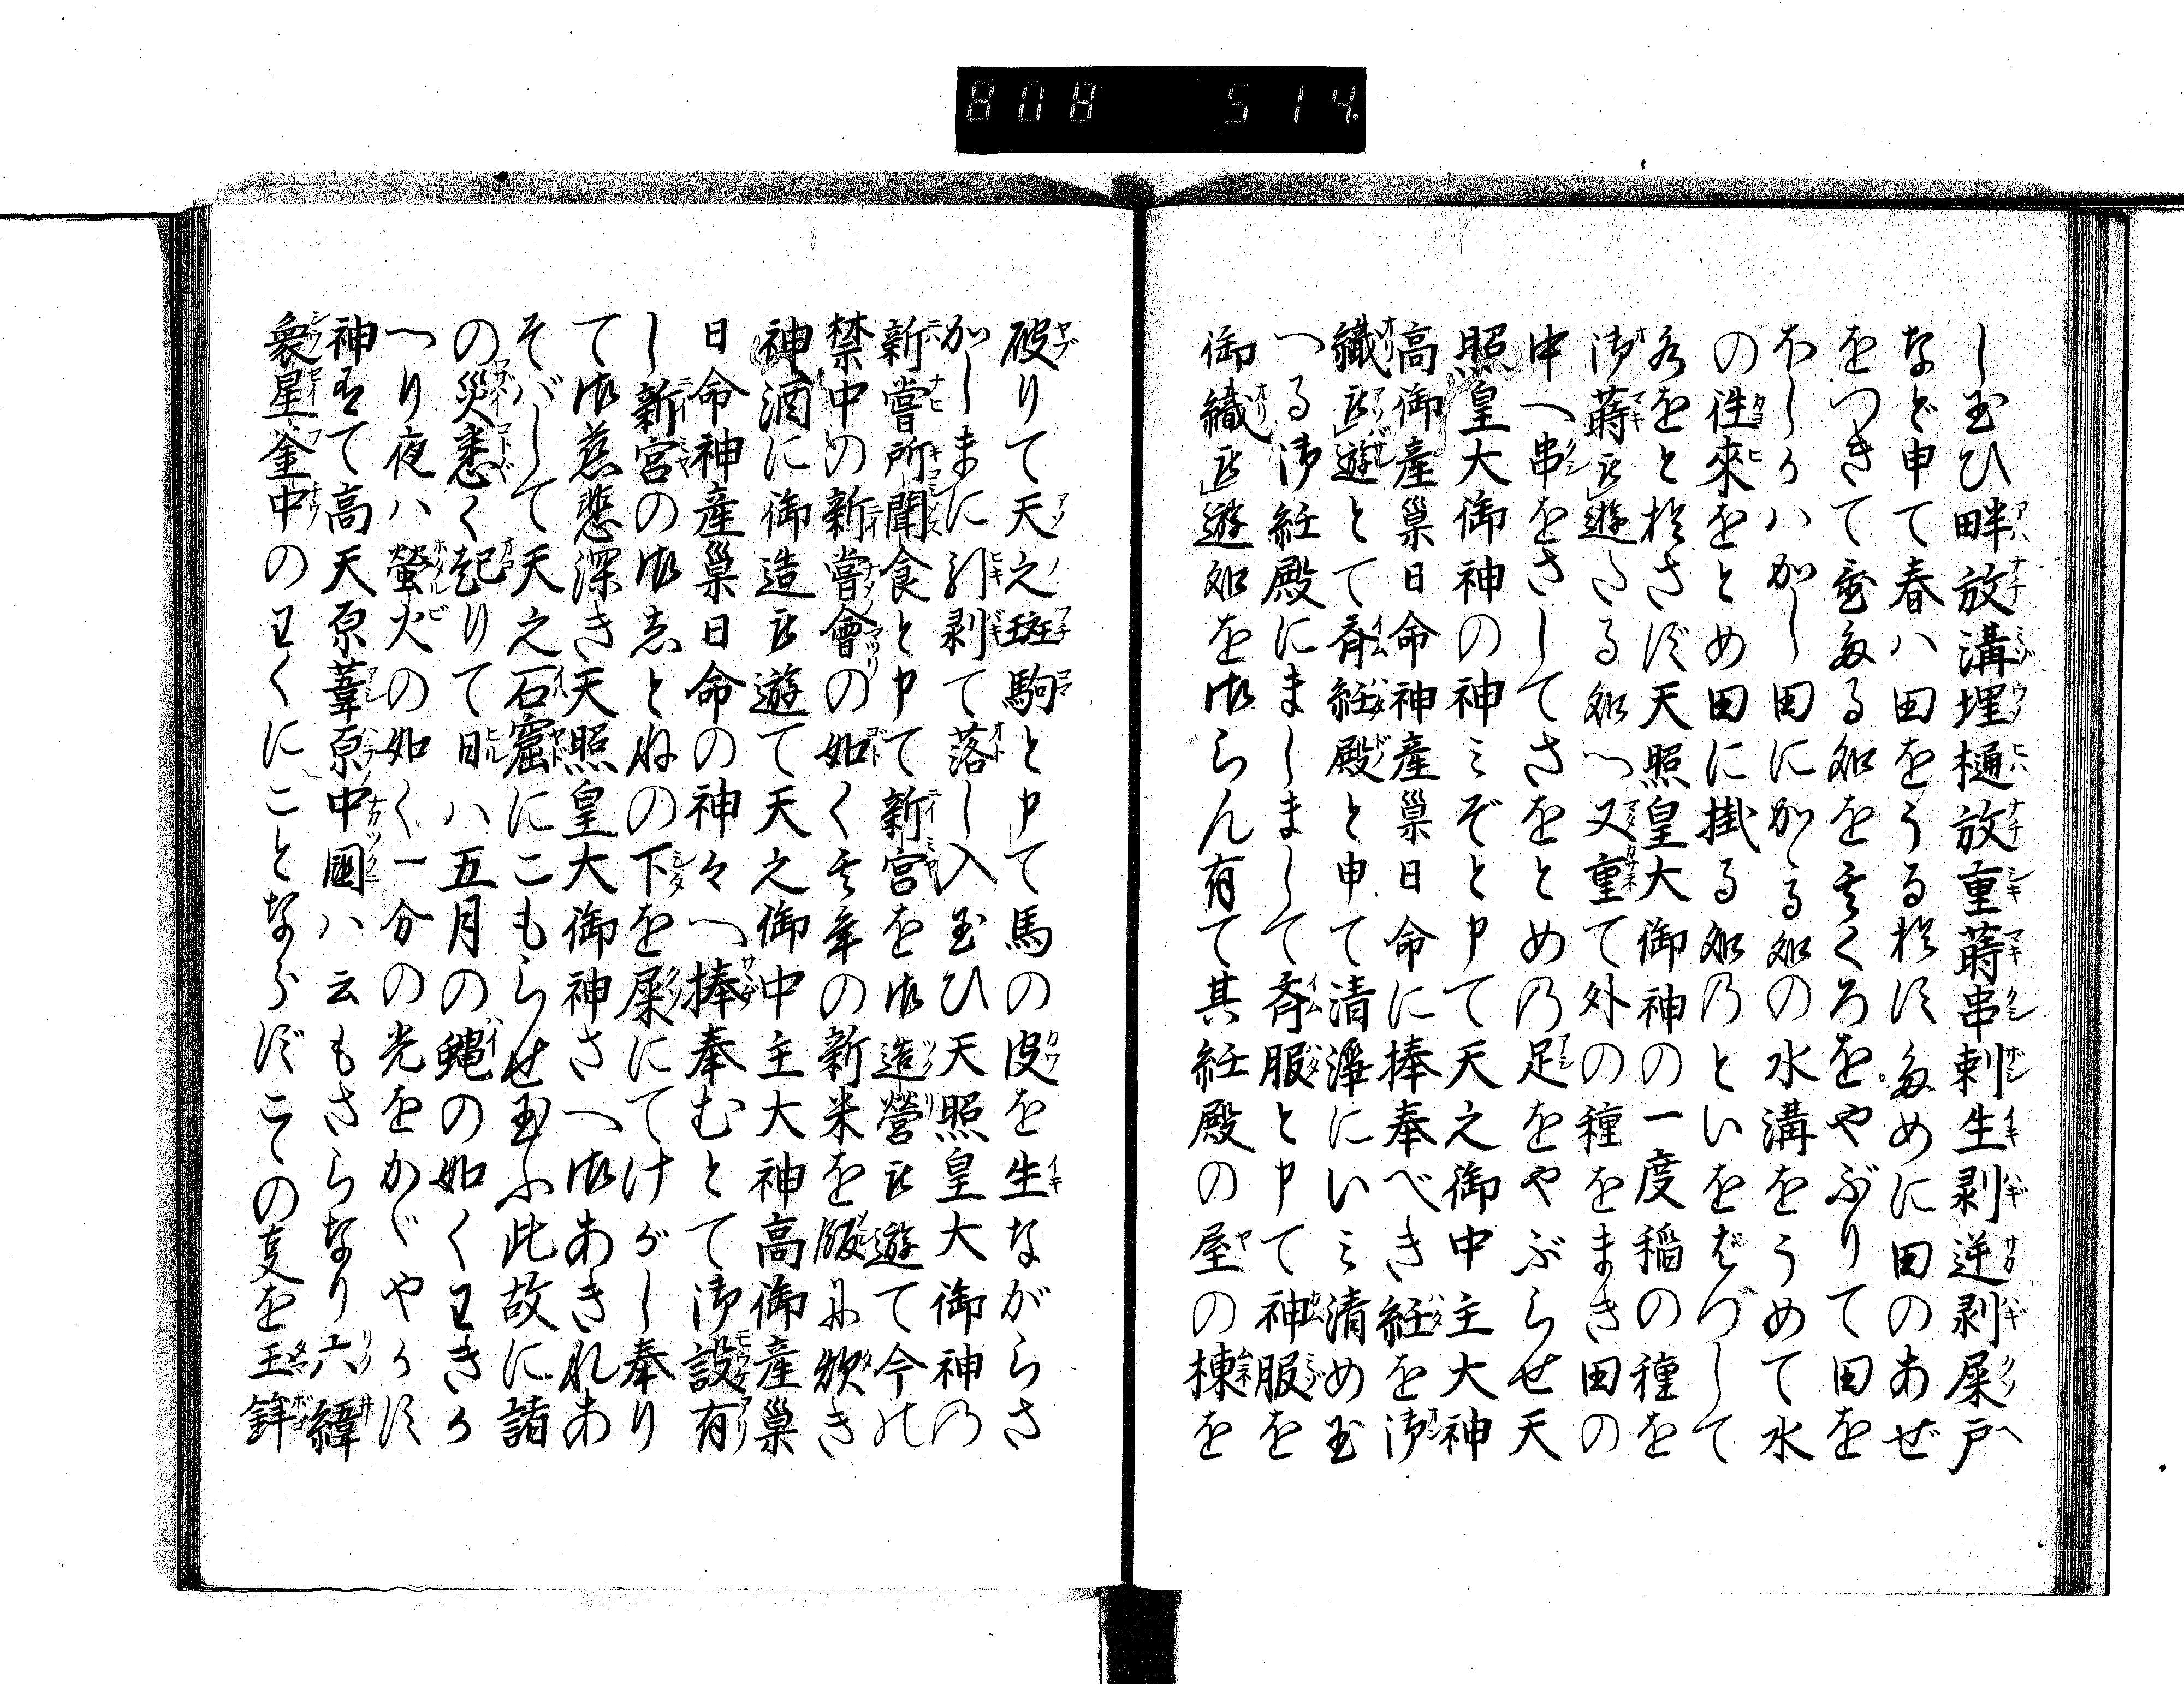 808 514
し玉ひ畔放溝埋樋放重蒔串刺生剥逆剥屎戸
など申て春ハ田をうる様にためめに田のあぜ
をつきて置たる処を悪くろをやぶりて田を
かし田にかゝる処の水溝をうめて水
の往來をとめ田に掛る処のといをはづして
天照皇大御神の一度稲の種を
御蒔被遊たる処へ又重て外の種をまき田の
中へ串をさしてさをとめの足をやぶらせ天
照皇大御神の神ミぞと申て天之御中主大神
高御産巣日命神産巣日命に捧奉べき紝を御
織被遊とて斉紝殿と申て清浄にいミ清め玉
へる御紝殿にましまして斉服と申て神服を
御織被遊処を御らん有て其紝殿の屋の棟を
破りて天之斑駒と申て馬の皮を生ながらさ
かしまに引剥て落し入玉ひ天照皇大御神の
新嘗所聞食と申て新宮を御造營被遊て今の
禁中の新嘗會の如く其年の新米を飯に炊き
神酒に御造被遊て天之御中主大神高御産巣
日命神産巣日命の神々へ捧奉むとて御設有
し新宮の御しとねの下を屎にてけがし奉り
て御慈悲深き天照皇大御神さへ御あきれあ
そバして天之石窟にこもらせ玉ふ此故に諸
の災悉く起りて昼ハ五月の蠅の如くわき
へり夜ハ螢火の如く一分の光をかゞやかす
神有て高天原葦原中國ハ云もさらなり六緯
衆星釜中のわくにことならずこの支を玉鉾